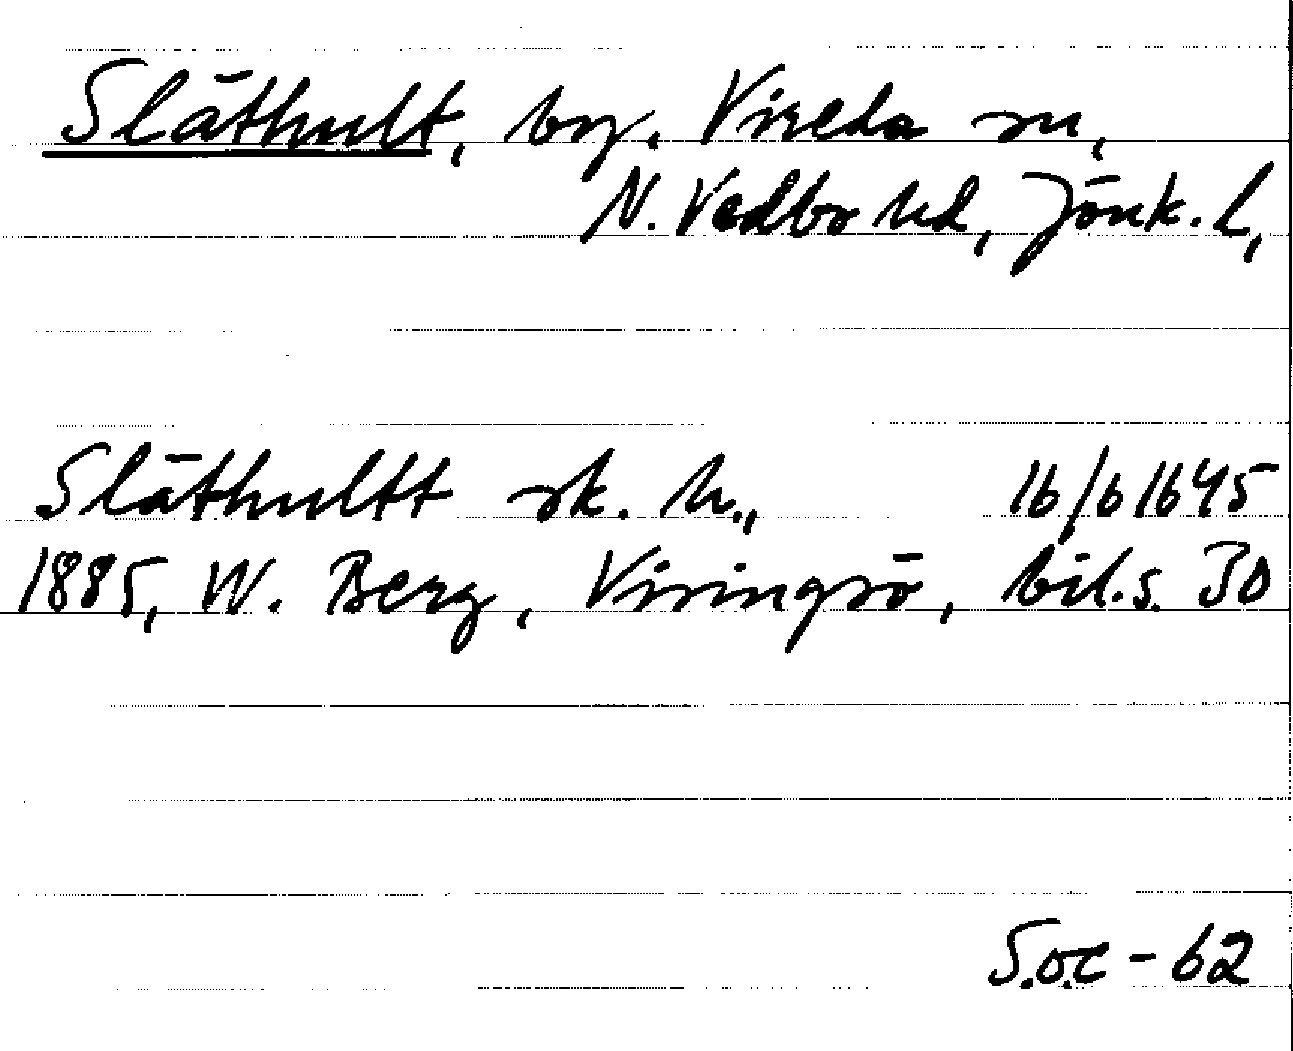 Släthult, by. Vireda sn,
N. Vedbo hd, Jönk. l,
Släthultt sk. h., 16/6 1645
1885, W. Berg, Visingsö, bil. s. 30
S.o.c - 62